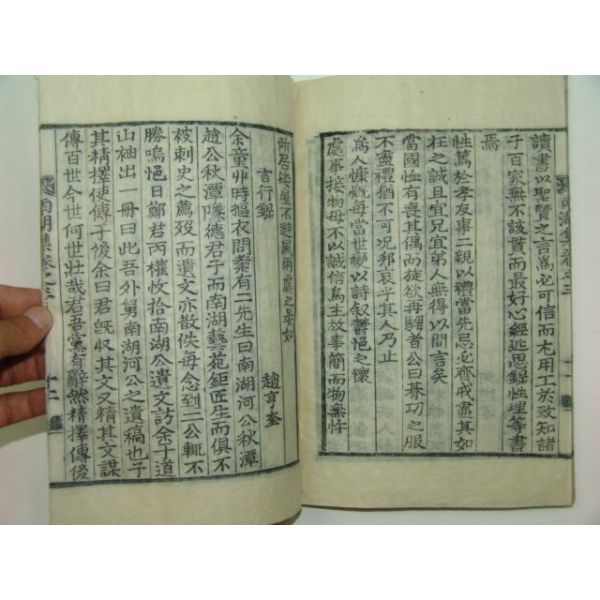 讀書以聖賢之言爲必可信而尤用工於致知諸
子百家無不該貫而最好心經近思錄性理等書
焉
性篤於孝友事二親以禮當先忌必齊戒盡其如
在之誠且宜兄宜弟人無得以間言矣
當國恤有喪其偶而旋欲毋 者公曰朞功之服
不盡禮猶不可況邦哀乎其人乃止
爲人慷慨每當世變以詩叙欝悒之懷
處事接物毋不以誠信爲主故事簡而物無忤
南湖集卷之三
所居 屋不避風雨處之晏如
言行錄
趙亨奎
余童丱時摳衣問業有二先生曰南湖河公秋潭
趙公秋潭隱德君子而南湖藝苑鉅匠生而俱不
被刺史之薦歿而遺文亦散佚每念到二公輒不
勝嗚悒日鄭君丙權收拾南湖公遺文訪余于道
山袖出一冊曰此吾外舅南湖河公之遺稿也子
其精擇使傳于後余曰君旣收其文又精其文謀
傳百世今世何世壯哉君吾黨有辭然精擇傳後
南湖集卷之三
十二